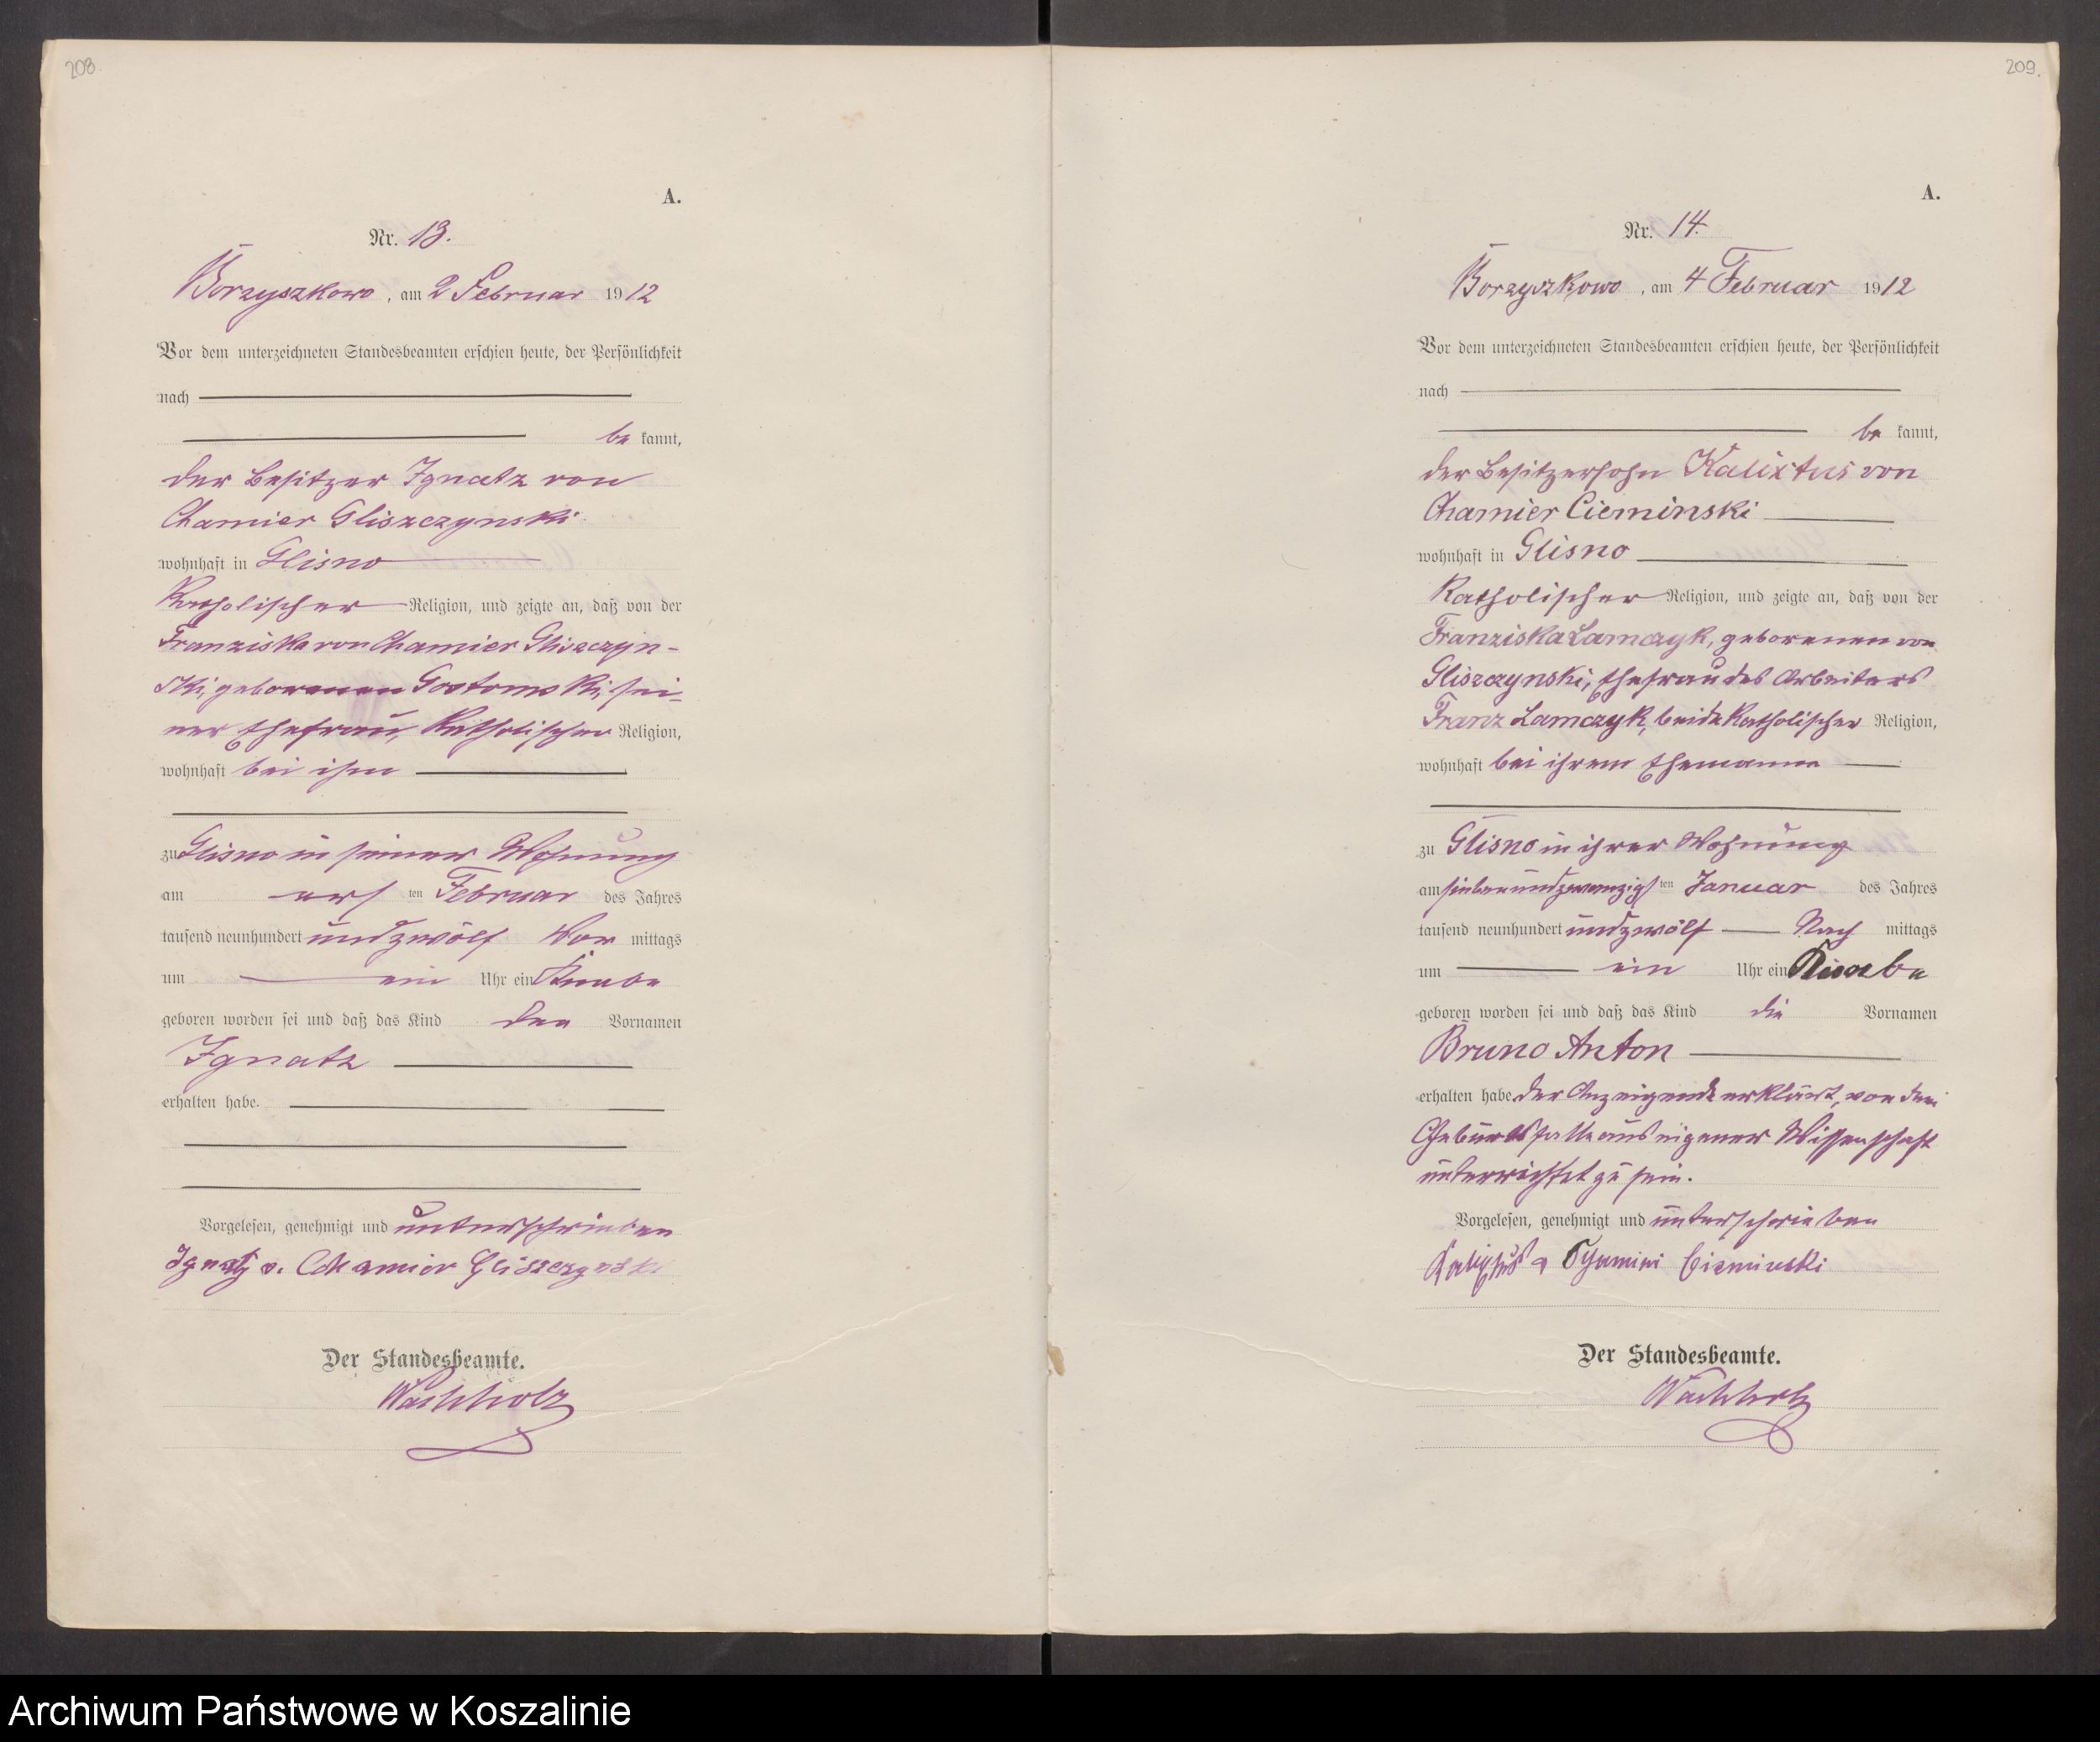 208.
A.
Nr. 13.
Borzyszkowo, am 2 Februar 1912
Vor dem unterzeichneten Standesbeamten erschien heute, der Persönlichkeit
nach
be kannt,
der Besitzer Ignatz von
Chamier Gliszczynski
wohnhaft in Glisno
Katholischer Religion, und zeigte an, daß von der
Franziska von Chamier Gliszczyn-
ski, geborenen Gostomski, sei-
ner Ehefrau, Katholischer Religion,
wohnhaft bei ihm
zu Glisno in seiner Wohnung
am ers ten Februar des Jahres
tausend neunhundert und zwölf Vor mittags
um ein Uhr ein Knabe
geboren worden sei und daß das Kind den Vornamen
Ignatz
erhalten habe.
Vorgelesen, genehmigt und unterschrieben
Ignatz v. Chamier Gliszczynski
Der Standesbeamte.
Wachholz
209.
A.
Nr. 14.
Borzyszkowo, am 4 Februar 1912
Vor dem unterzeichneten Standesbeamten erschien heute, der Persönlichkeit
nach
be kannt,
der Besitzersohn Kalixtus von
Chamier Cieminski
wohnhaft in Glisno
Katholischer Religion, und zeigte an, daß von der
Franziska Lamczyk, geborenen von
Gliszczynski, Ehefrau des Arbeiters
Franz Lamczyk, beide Katholischer Religion,
wohnhaft bei ihrem Ehemanne
zu Glisno in ihrer Wohnung
am siebenundzwanzigs ten Januar des Jahres
tausend neunhundert und zwölf Nach mittags
um ein Uhr ein Knabe
geboren worden sei und daß das Kind die Vornamen
Bruno Anton
erhalten habe. Der Anzeigende erklärt, von dem
Geburtsfalle aus eigener Wissenschaft
unterrichtet zu sein.
Vorgelesen, genehmigt und unterschrieben
Cieminski
Der Standesbeamte.
Wachholz
Archiwum Państwowe w Koszalinie